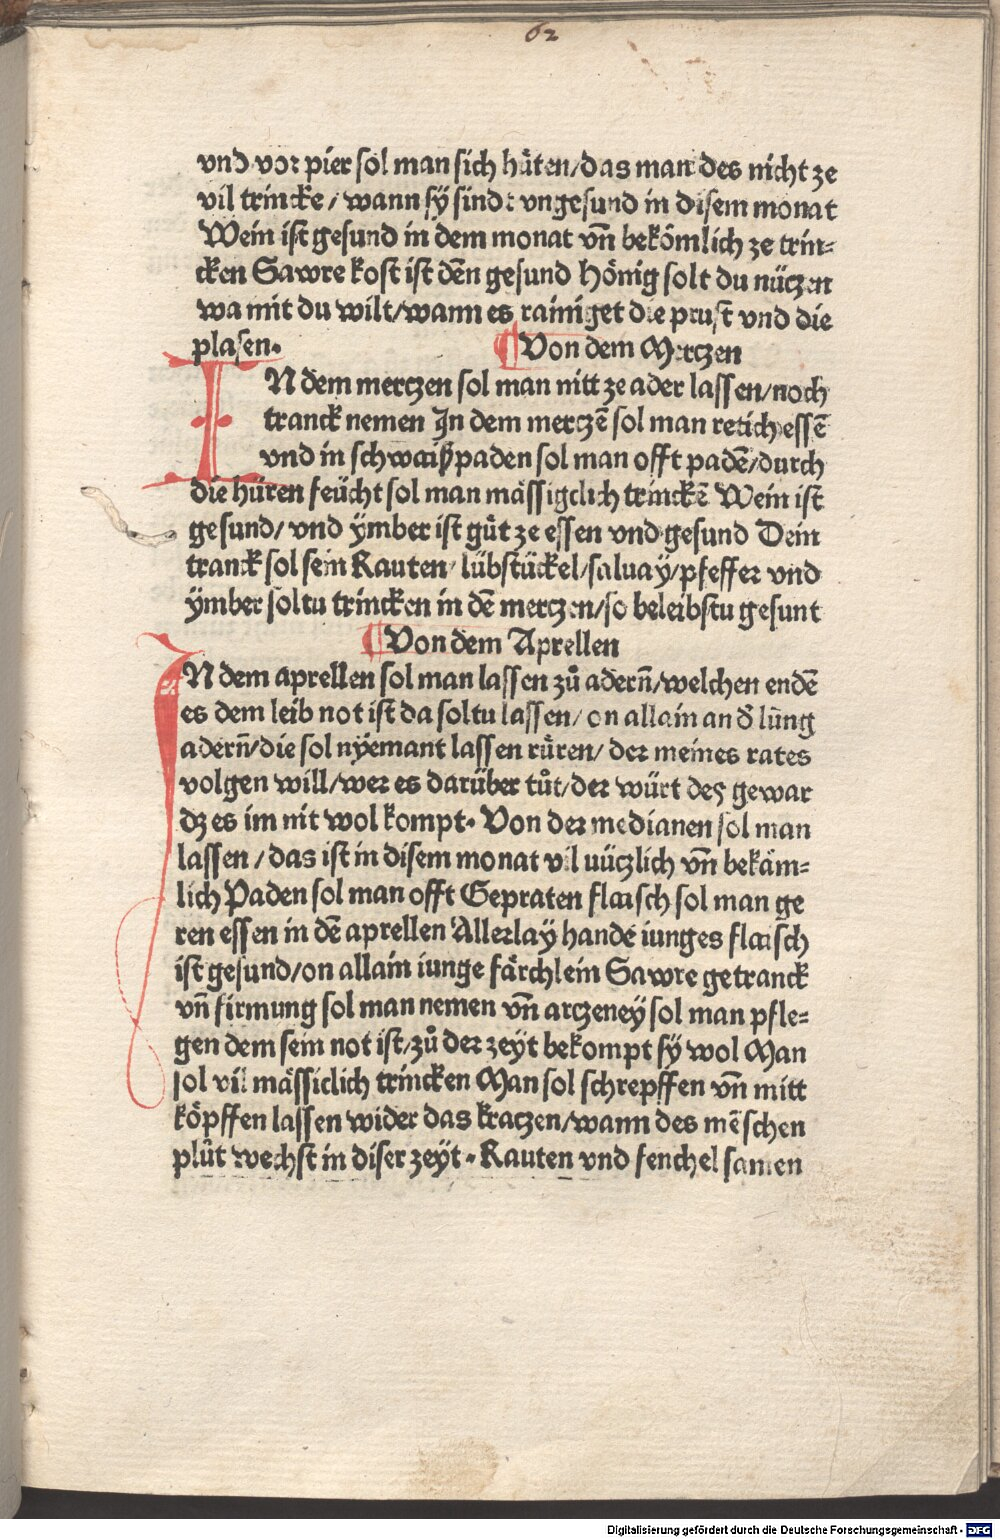 62
vnd vor pier sol man sich hüten/das man des nicht ze
vil trincke/wann sÿ sind vngesund in disem monat
Wein ist gesund in dem monat vn̄ bekömlich ze trin⸗
cken Sawre kost ist den̄ gesund Hönig solt du nützen
wa mit du wilt/wann es rainiget die prust vnd die
plasen. ¶Von dem Mertzen
IN dem mertzen sol man nitt ze ader lassen/noch
tranck nemen In dem mertzē sol man retich essē
vnd in schwaißpaden sol man offt padē/durch
die hüren feücht sol man mässigclich trinckē Wein ist
gesund/vnd ÿmber ist gůt ze essen vnd gesund Dein
tranck sol sein Rauten/lübstückel/saluaÿ/pfeffer vnd
ÿmber soltu trincken in dē mertzen/so beleibstu gesunt
¶Von dem Aprellen
IN dem aprellen sol man lassen zů adern̄/welchen endē
es dem leib not ist da soltu lassen/on allain an d̄ lūng
adern̄/die sol nyemant lassen rüren/der meines rates
volgen will/wer es darüber tůt/der würt des gewar
dz es im nit wol kompt. Von der medianen sol man
lassen/das ist in disem monat vil nützlich vn̄ bekäm⸗
lich Paden sol man offt Gepraten flaisch sol man ge
ren essen in dē aprellen Allerlaÿ hande iunges flaisch
ist gesund/on allain iunge färchlein Sawre getranck
vn̄ firmung sol man nemen vn̄ artzeney sol man pfle⸗
gen dem sein not ist/zů der zeÿt bekompt sÿ wol Man
sol vil mässiclich trincken Man sol schrepffen vn̄ mitt
köpffen lassen wider das kratzen/wann des mēschen
plůt wechst in diser zeÿt. Rauten vnd fenchel samen
Digitalisierung gefördert durch die Deutsche Forschungsgemeinschaft - DFG